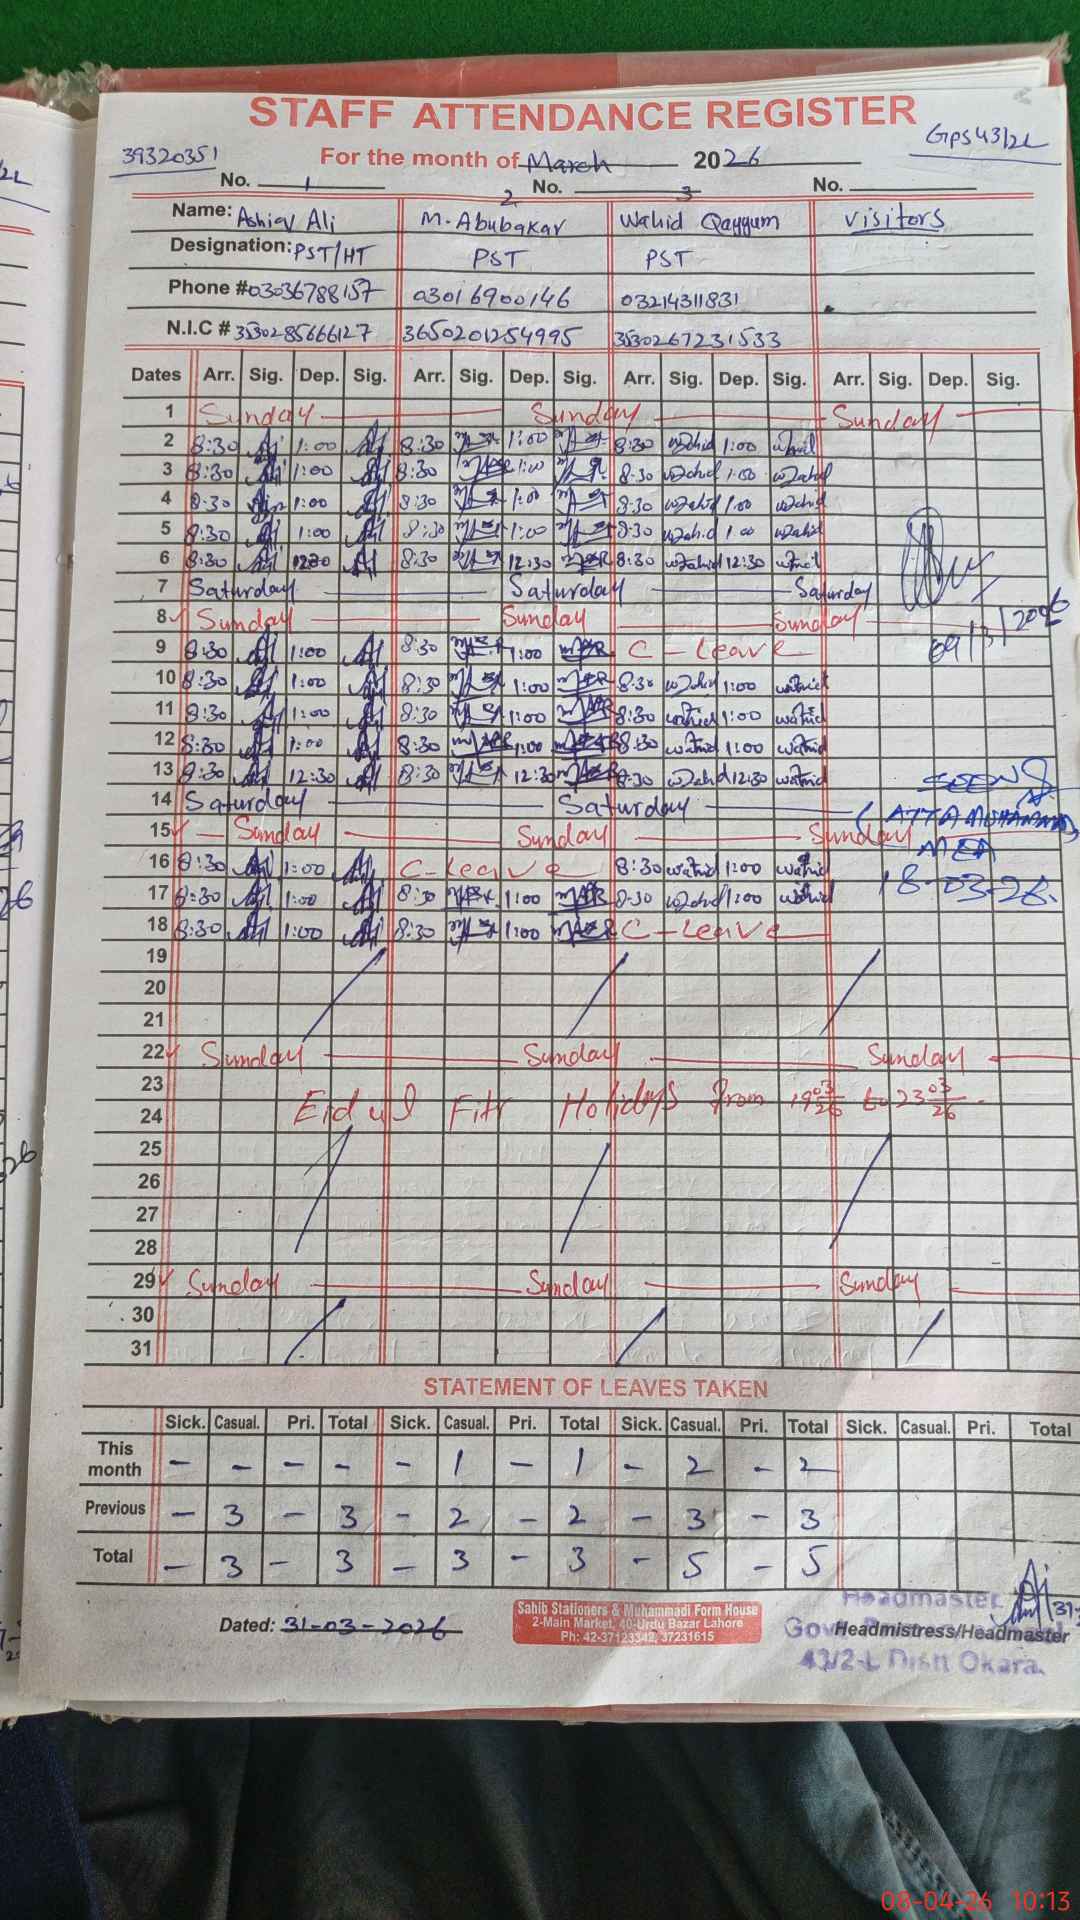 STAFF ATTENDANCE REGISTER
39320351 For the month of March 2026 GPS 43/2L
No. 1 2 No. 3 No.
Name: Ashiq Ali M. Abubakar Wahid Qayyum Visitors
Designation: PST/HT PST PST
Phone # 03036788157 03016900146 03214311831
N.I.C # 3530285666127 3650201254995 3530267231533
Dates Arr. Sig. Dep. Sig. Arr. Sig. Dep. Sig. Arr. Sig. Dep. Sig. Arr. Sig. Dep. Sig.
1 Sunday Sunday Sunday
2 8:30 1:00 8:30 1:00 8:30 wahid 1:00 wahid
3 8:30 1:00 8:30 1:00 8:30 wahid 1:00 wahid
4 8:30 1:00 8:30 1:00 8:30 wahid 1:00 wahid
5 8:30 1:00 8:30 1:00 8:30 wahid 1:00 wahid
6 8:30 12:30 8:30 12:30 8:30 wahid 12:30 wahid
7 Saturday Saturday Saturday
8 Sunday Sunday Sunday
9 8:30 1:00 8:30 1:00 C-Leave 09/3/2026
10 8:30 1:00 8:30 1:00 8:30 wahid 1:00 wahid
11 8:30 1:00 8:30 1:00 8:30 wahid 1:00 wahid
12 8:30 1:00 8:30 1:00 8:30 wahid 1:00 wahid
13 8:30 12:30 8:30 12:30 8:30 wahid 12:30 wahid SEEN
14 Saturday Saturday (ATTA MUHAMMAD)
15 Sunday Sunday Sunday MEA
16 8:30 1:00 C-Leave 8:30 wahid 1:00 wahid
17 8:30 1:00 8:30 1:00 8:30 wahid 1:00 wahid 18-03-26.
18 8:30 1:00 8:30 1:00 C-Leave
19
20
21
22 Sunday Sunday Sunday
23
24 Eid ul Fitr Holidays from 19 03/26 to 23 03/26
25
26
27
28
29 Sunday Sunday Sunday
30
31
STATEMENT OF LEAVES TAKEN
Sick. Casual. Pri. Total Sick. Casual. Pri. Total Sick. Casual. Pri. Total Sick. Casual. Pri. Total
This month - - - - - 1 - 1 - 2 - 2
Previous - 3 - 3 - 2 - 2 - 3 - 3
Total - 3 - 3 - 3 - 3 - 5 - 5
Dated: 31-03-2026
Sahib Stationers & Muhammadi Form House
2-Main Market, 40-Urdu Bazar Lahore
Ph: 42-37123342, 37231615
Headmaster
Headmistress/Headmaster
43/2-L Distt Okara.
08-04-26 10:13